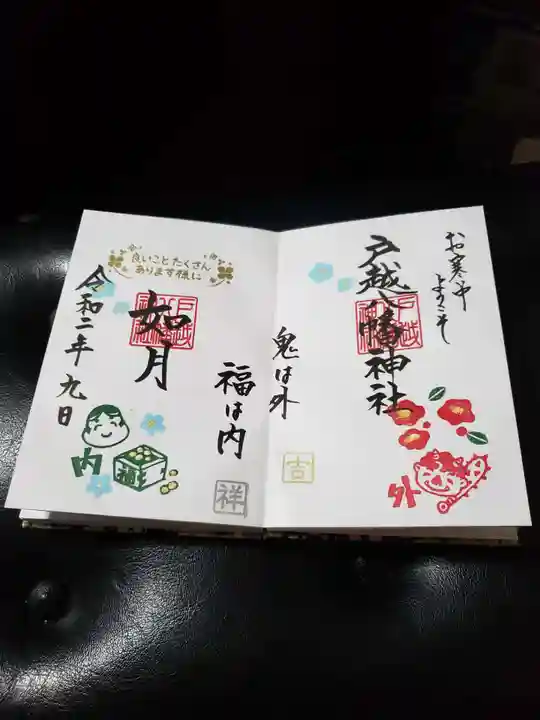 お寒い中
ようこそ
戸越八幡神社
外
鬼は外
吉
良いことたくさん
あります様に
如月
福は内
祥
令和二年
九日
内